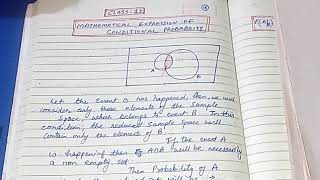 CLASS-11
MATHEMATICAL EXPRESSION OF
CONDITIONAL PROBABILITY
A
B
Let the Event B has happened, then we will
consider only those elements of the Sample
Space, which belongs to event B. In this
condition, the reduced Sample Space will
contain only the elements of B.
If the event A
is happening then A∩B will be necessarily
a non empty set.
Then Probability of A